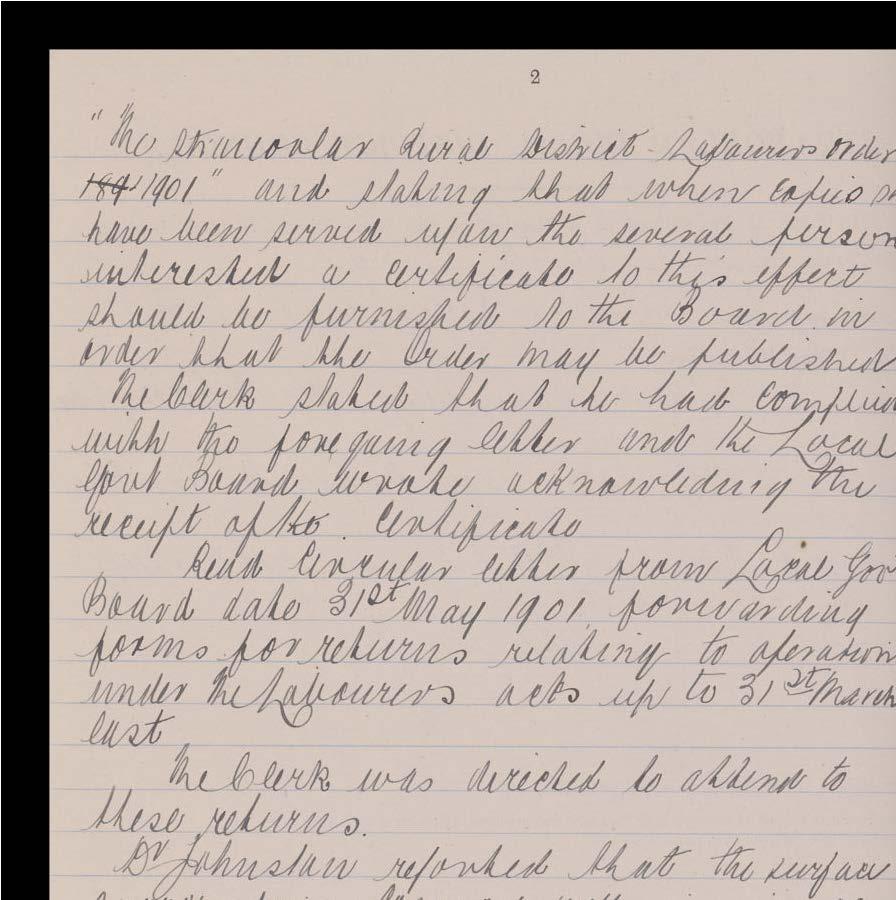 2
"The Stranorlar Rural District Labourers order
189 1901" and stating that when copies
have been served upon the several person
interested a certificate to this effect
should be furnished to the Board in
order that the Order may be published
The Clerk stated that he had complied
with the foregoing letter and the Local
Govt Board wrote acknowledging the
receipt of the Certificate
Read Circular letter from Local Gov
Board date 31st May 1901 forwarding
forms for returns relating to operation
under the Labourers acts up to 31st March
last
The Clerk was directed to attend to
these returns.
Dr Johnston reported that the surface